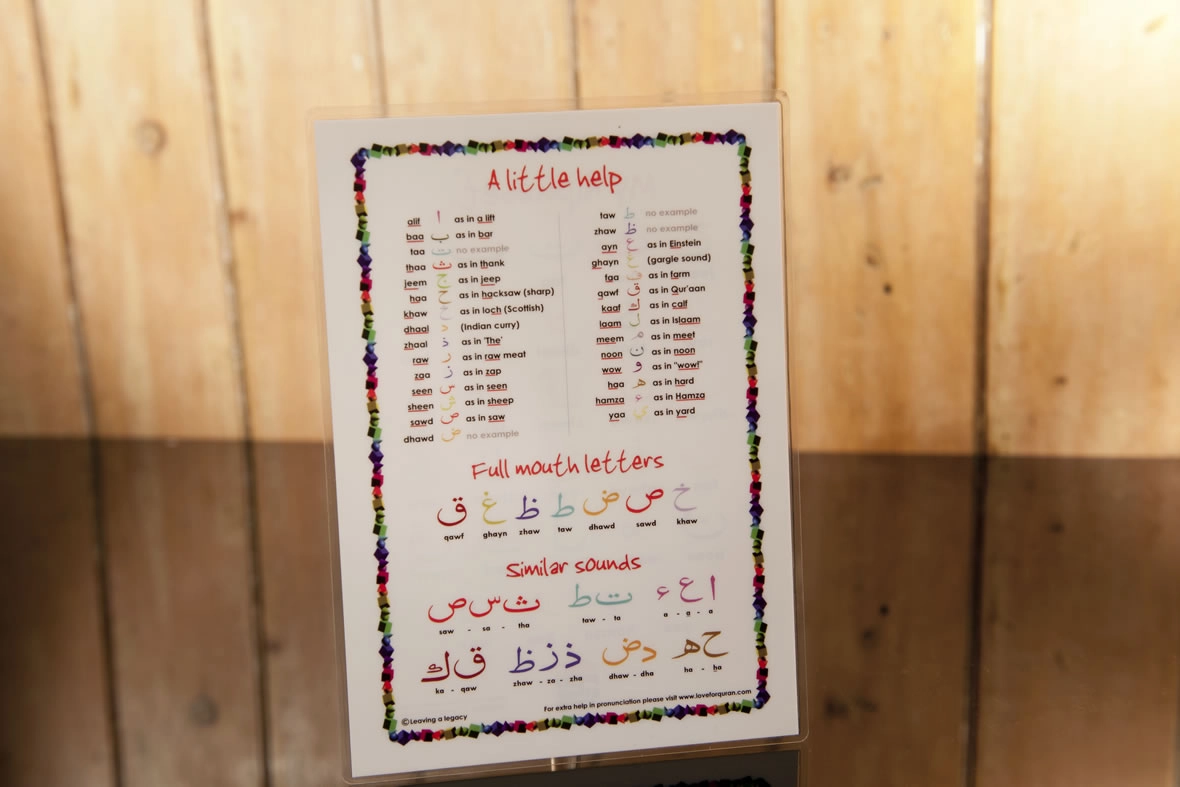 A little help
alif ا as in a lift
baa ب as in bar
taa ت no example
thaa ث as in thank
jeem ج as in jeep
haa ح as in hacksaw (sharp)
khaw خ as in loch (Scottish)
dhaal د (Indian curry)
zhaal ذ as in 'The'
raw ر as in raw meat
zaa ز as in zap
seen س as in seen
sheen ش as in sheep
sawd ص as in saw
dhawd ض no example
taw ط no example
zhaw ظ no example
ayn ع as in Einstein
ghayn غ (gargle sound)
faa ف as in farm
qawf ق as in Qur'aan
kaaf ك as in calf
laam ل as in Islaam
meem م as in meet
noon ن as in noon
wow و as in "wow!"
haa ه as in hard
hamza ء as in Hamza
yaa ي as in yard
Full mouth letters
ق غ ظ ط ض ص خ
qawf ghayn zhaw taw dhawd sawd khaw
Similar sounds
ص س ث ط ت ء ع ا
saw - sa - tha taw - ta a - a - a
ك ق ظ ز ذ ض د ه ح
ka - qaw zhaw - za - zha dhaw - dha ha - ha
©Leaving a legacy
For extra help in pronunciation please visit www.loveforquran.com